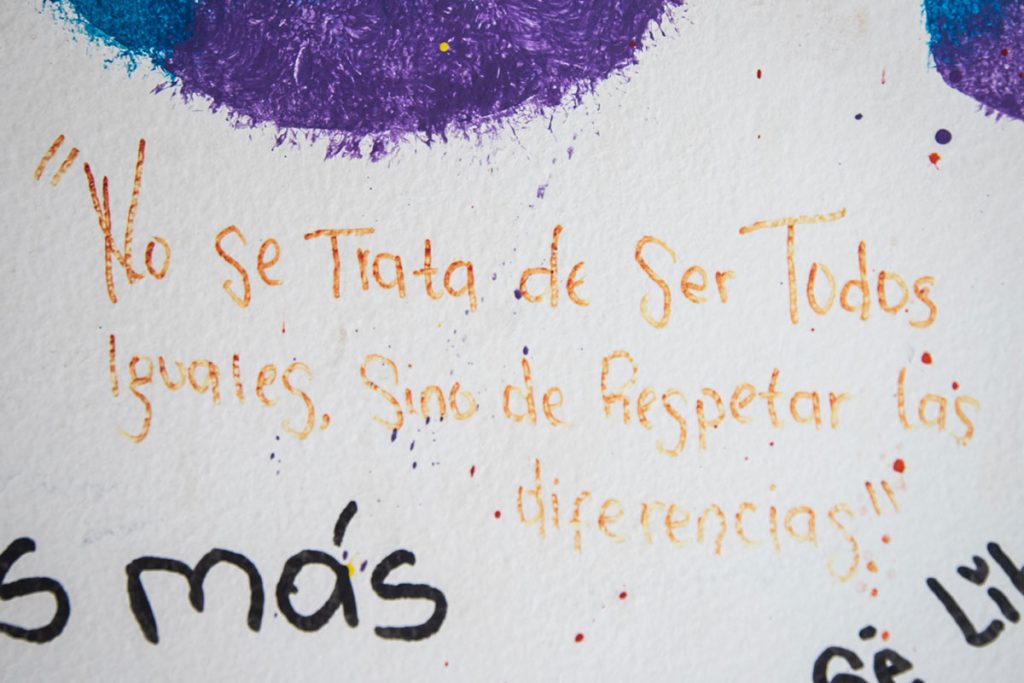 "No Se Trata de Ser Todos
Iguales, Sino de Respetar las
diferencias"
s más
Sé Lib